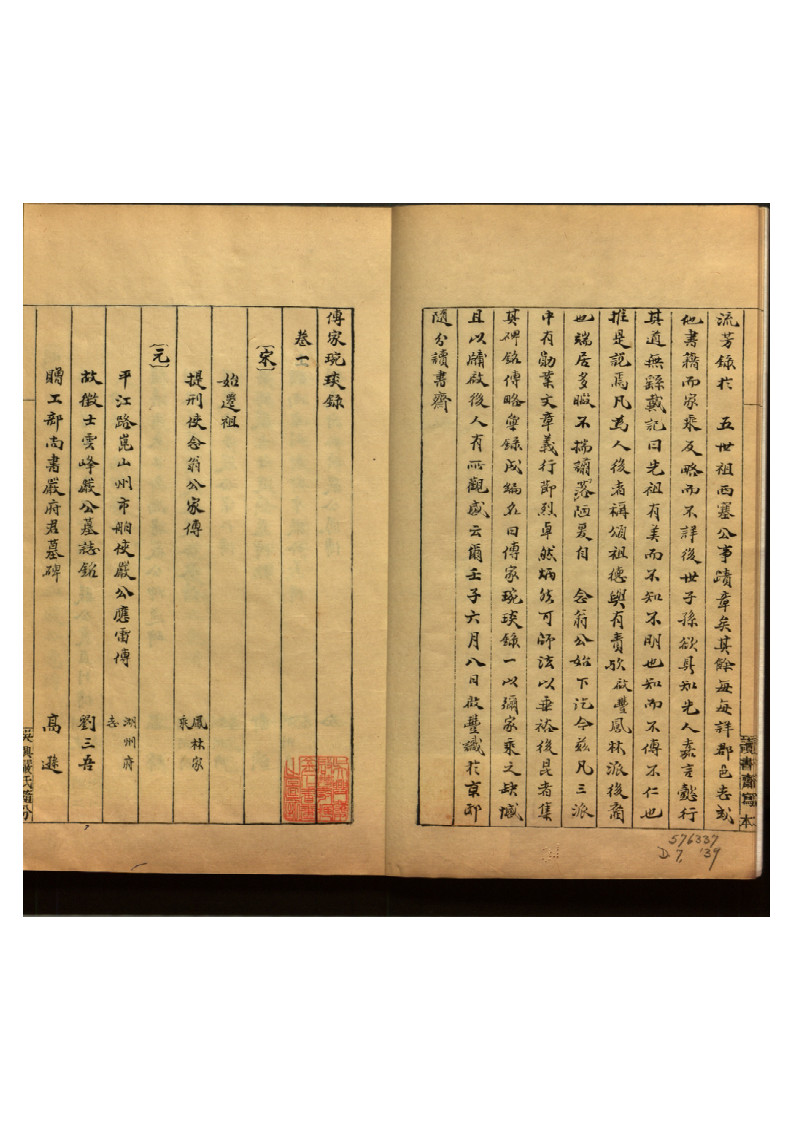 流芳錄於　五世祖西塞公事蹟章矣其餘每每詳郡邑志或
他書籍而家乘反略而不詳後世子孫欲具知先人嘉言懿行
其道無繇戴記曰先祖有美而不知不明也知而不傳不仁也
推是說焉凡為人後者稱頌祖德與有責歟啟豐鳳林派後裔
也端居多暇不揣讕落陋爰自　念翁公始下迄今茲凡三派
中有勛業文章義行節烈卓然炳然可師法以垂裕後昆者集
其碑銘傳略彙錄成編名曰傳家琬琰錄一以彌家乘之缺憾
且以牖啟後人有所觀感云爾壬子六月八日啟豐識於京邸
隨分讀書齋
讀書齋寫本
576337
D.7.'39
傳家琬琰錄
卷一
〔宋〕
始遷祖
提刑使念翁公家傳　鳳林家乘
〔元〕
平江路崑山州市舶使嚴公應雷傳　湖州府志
故徵士雲峰嚴公墓誌銘　劉三吾
贈工部尚書嚴府君墓碑　高遜
吳興嚴氏